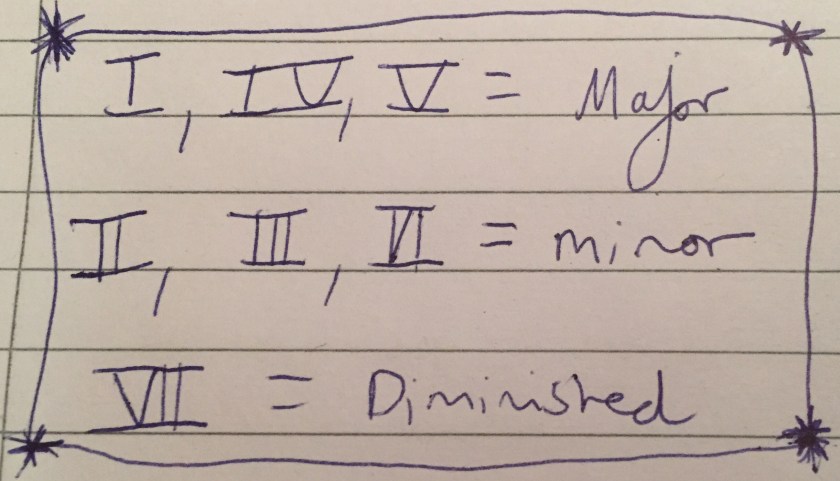 I, IV, V = Major
II, III, VI = minor
VII = Diminished